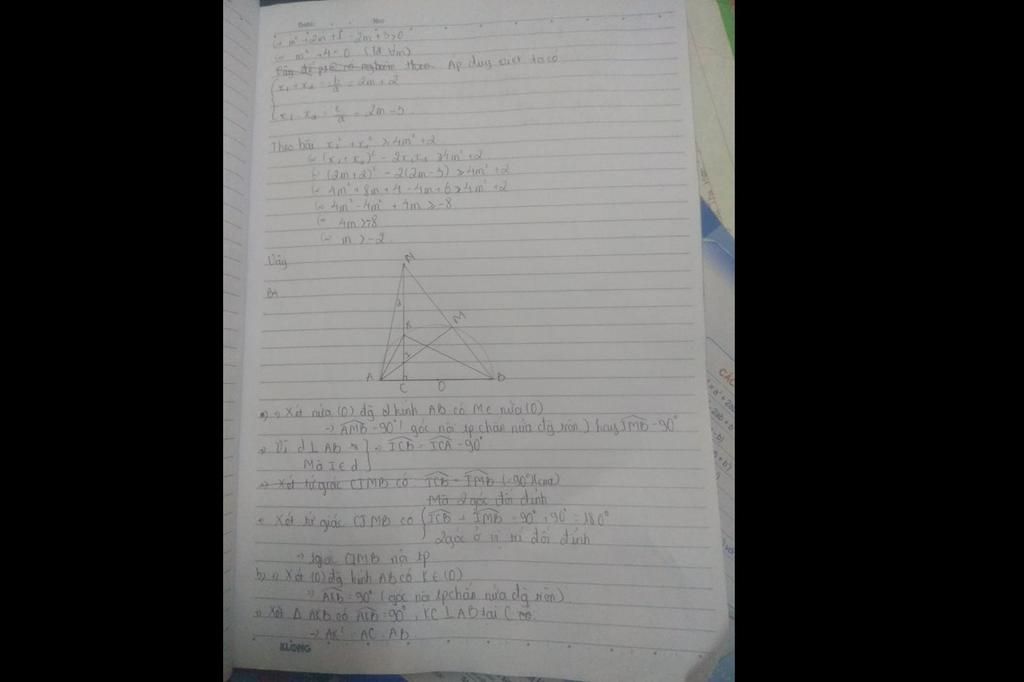 ⇔ m² + 2m + 1 - 2m + 3 > 0
⇔ m² + 4 > 0 (lđ ∀m)
Áp dụng viét ta có
x₁ + x₂ = -b/a = 2m + 2
x₁ . x₂ = c/a = 2m - 3
Theo bài x₁² + x₂² > 4m² + 2
⇔ (x₁ + x₂)² - 2x₁x₂ > 4m² + 2
⇔ (2m + 2)² - 2(2m - 3) > 4m² + 2
⇔ 4m² + 8m + 4 - 4m + 6 > 4m² + 2
⇔ 4m² - 4m² + 4m > -8
⇔ 4m > -8
⇔ m > -2
Vậy
N
K
M
A
C
O
B
a) Xét nửa (O) đg kính AB có M ∈ nửa (O)
→ AMB = 90° (góc nội tp chắn nửa đg tròn) hay IMB = 90°
Vì d ⊥ AB
Mà I ∈ d
→ ICB = ICA = 90°
→ Xét tứ giác CIMB có ICB = IMB (= 90°) (cmt)
Mà 2 góc đối đỉnh
Xét tứ giác CIMB có ICB + IMB = 90° + 90° = 180°
2 góc ở vị trí đối đỉnh
→ tgiác CIMB nội tp
b) Xét (O) đg kính AB có K ∈ (O)
→ AKB = 90° (góc nội tp chắn nửa đg tròn)
Xét Δ AKB có AKB = 90°, KC ⊥ AB tại C
→ AK² = AC . AB
KLONG